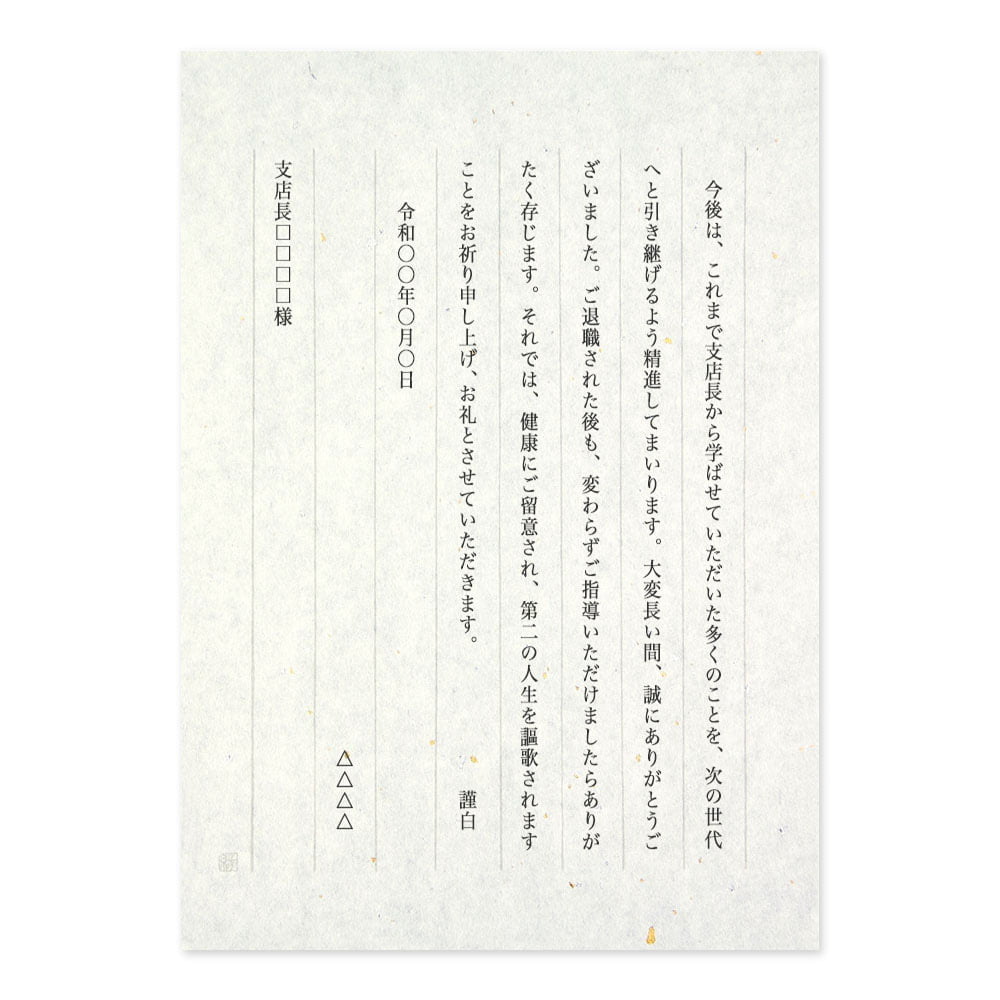 今後は、これまで支店長から学ばせていただいた多くのことを、次の世代
へと引き継げるよう精進してまいります。大変長い間、誠にありがとうご
ざいました。ご退職された後も、変わらずご指導いただけましたらありが
たく存じます。それでは、健康にご留意され、第二の人生を謳歌されます
ことをお祈り申し上げ、お礼とさせていただきます。 謹白
令和〇〇年〇月〇日
△△△△
支店長□□□□様